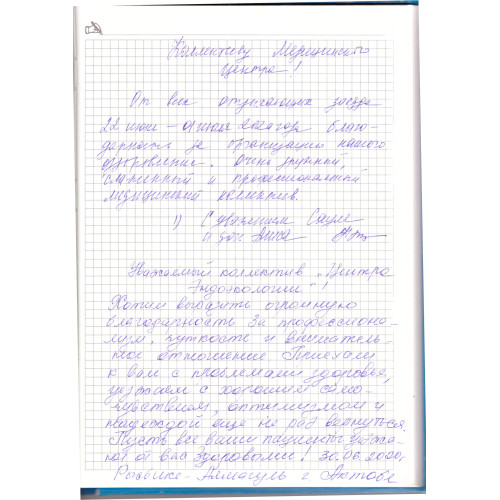 Коллективу Медицинского
Центра!
От всех отдыхающих заезда
22 июня – 01 июля 2020 года благо-
дарность за организацию нашего
оздоровления. Очень дружный,
слаженный и профессиональный
медицинский коллектив.
1) С уважением Сауле
и
Уважаемый коллектив „Центра
Эндоэкологии"!
Хотим выразить огромную
благодарность за профессиона-
лизм, чуткость и вниматель-
ное отношение. Приехали
к вам с проблемами здоровья,
уезжаем с хорошим само-
чувствием, оптимизмом и
надеждой еще не раз вернуться.
Пусть все ваши пациенты уезжа-
ют от вас здоровыми! 30.06.2020г.
Алмагуль г. Актобе